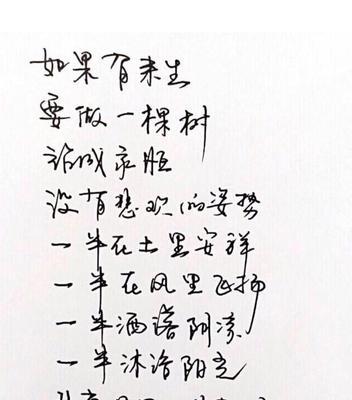 如果有来生
要做一棵树
站成永恒
没有悲欢的姿势
一半在土里安详
一半在风里飞扬
一半洒落阴凉
一半沐浴阳光